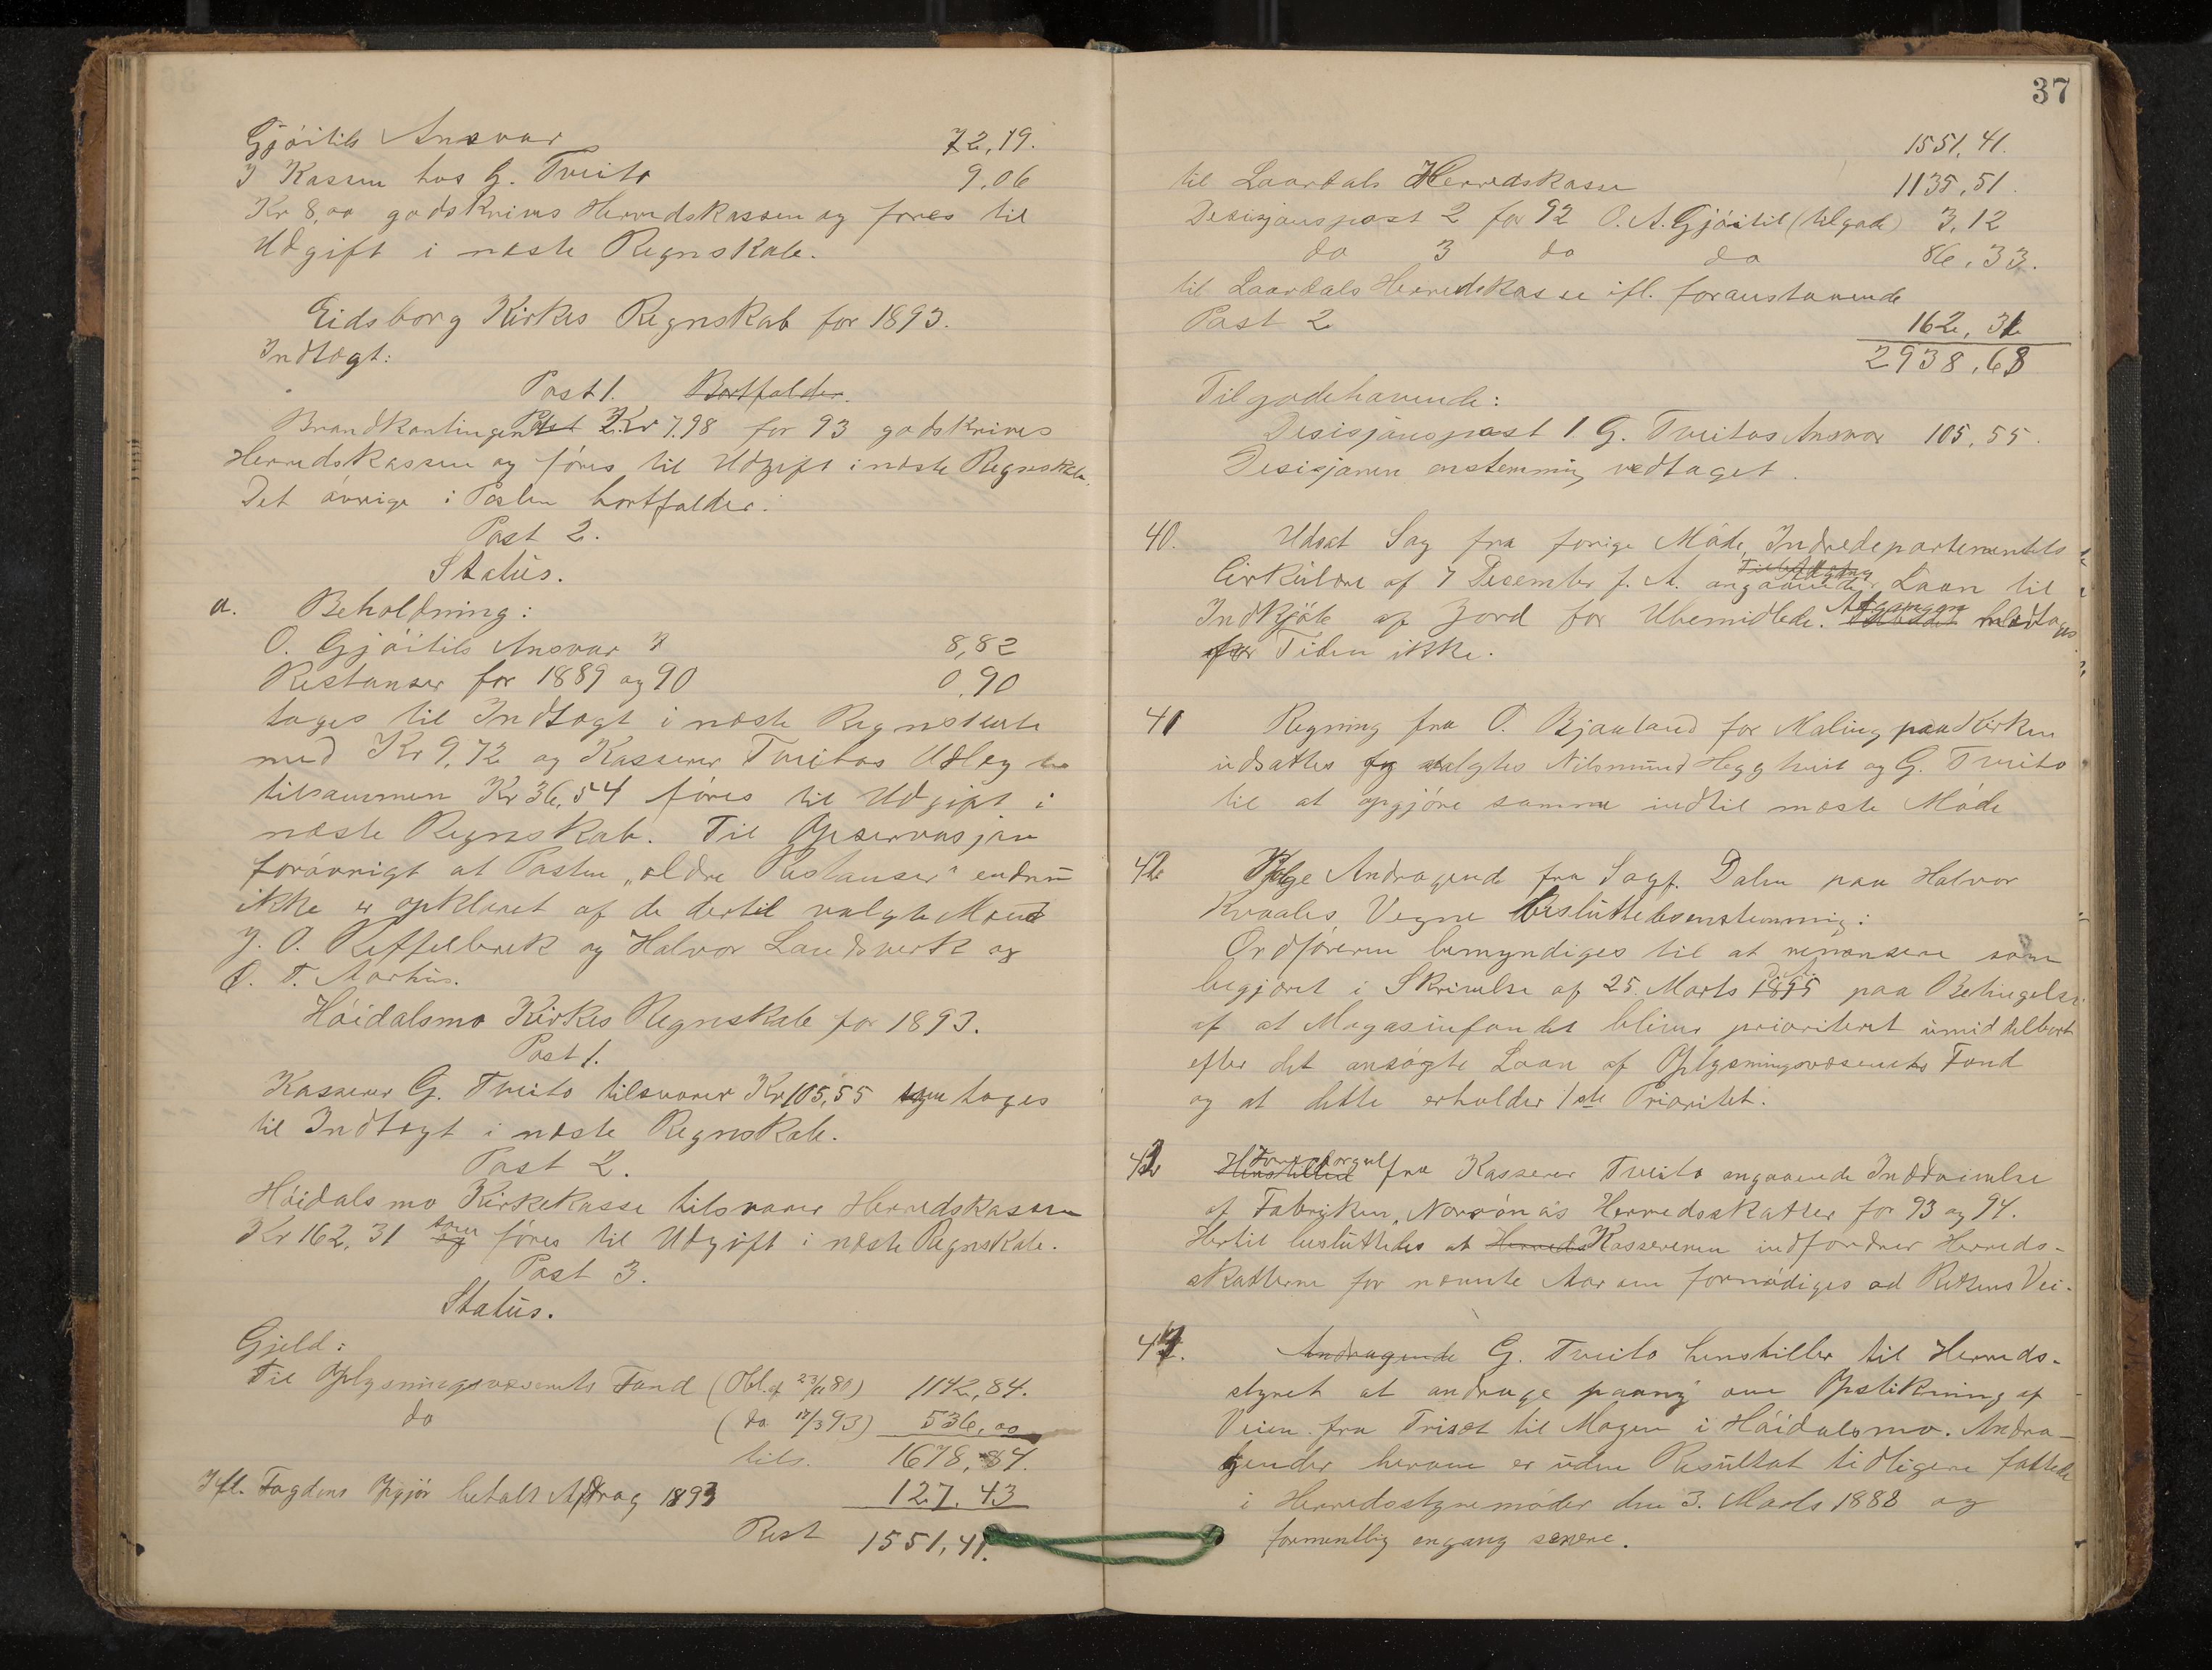 Gjöitils Ansvar 72,19.
I Kassen hos G. Tveito 9,06
Kr 8,00 godskrives Herredskassen og føres til
Udgift i næste Regnskab.
Eidsborg Kirkes Regnskab for 1893.
Indtægt:
Post 1. Bortfalder.
Brandkontingent Kr 7.98 for 93 godskrives
Herredskassen og föres til Udgift i næste Regnskab.
Det övrige i Posten bortfalder.
Post 2.
Status.
a. Beholdning:
O. Gjöitils Ansvar 8,82
Restanser for 1889 og 90 0,90
tages til Indtægt i næste Regnskab
med Kr 9,72 og Kasserer Tveitos Udlæg
tilsammen Kr 36,54 föres til Udgift i
næste Regnskab. Til Observasjon
forövrigt at Posten „ældre Restanser" endnu
ikke er opklaret af de dertil valgte Mænd
J. O. Riffelbræk og Halvor Landsverk og
O. T. Aarhus.
Höidalsmo Kirkes Regnskab for 1893.
Post 1.
Kasserer G. Tveito tilsvarer Kr 105,55 som tages
til Indtægt i næste Regnskab.
Post 2.
Höidalsmo Kirkekasse tilsvarer Herredskassen
Kr 162,31 som og föres til Udgift i næste Regnskab.
Post 3.
Status.
Gjeld:
Til Oplysningsvæsenets Fond (Obl. af 23/11 80) 1142,84.
do (do 17/3 93) 536,00
tils. 1678,84.
Ifl. Fogdens Opgjör betalt Afdrag 1893 127,43
Rest 1551,41.
37
1551,41.
til Laardals Herredskasse 1135,51.
Desisjonspost 2 for 92 O. A. Gjöitil (tilgode) 3,12
do 3 do do 86,33.
til Laardals Herredskasse ifl. foranstaaende
Post 2 162,31
2938,68
Tilgodehavende:
Desisjonspost 1. G. Tveitos Ansvar 105,55.
Desisjonen enstemmig vedtaget.
40. Udsat Sag fra forige Möde, Indredepartementets
Cirkulære af 7 Desember f. A. angaaende Laan til
Indkjöb af Jord for Ubemidlede. Adgangen vedtages
for Tiden ikke.
41 Regning fra O. Bjaaland for Maling paa Kirken
udsattes og valgtes Nilsmund Heggtveit og G. Tveito
til at opgjöre samme indtil næste Möde
42 Ifölge Andragende fra Sagf. Dalen paa Halvor
Kvaales Vegne besluttedes enstemmig:
Ordföreren bemyndiges til at renonsere som
begjært i Skrivelse af 25. Marts 1895 paa Betingelse
af at Magasinfondet bliver prioriteret umiddelbart
efter det ansögte Laan af Oplysningsvæsenets Fond
og at dette erholder 1ste Prioritet.
43 Henstilled Forespörgsel fra Kasserer Tveito angaaende Inddrivelse
af Fabriken „Norröna's Herredsskatter for 93 og 94.
Hertil besluttedes at Herreds Kassereren indfordrer Herreds-
skatterne for nævnte Aar om fornödiges ad Rettens Vei.
44. Andragende G. Tveito henstiller til Herreds-
styret at andrage paany om Opstikning af
Veien fra Triset til Mogen i Höidalsmo. Andra-
gender herom er uden Resultat tidligere fattede
i Herredsstyremöder den 3. Marts 1888 og
formentlig engang senere.